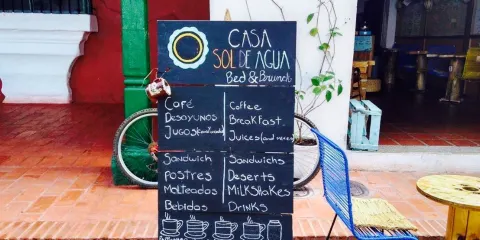 CASA
SOL DE AGUA
Bed & Brunch
Café
Desayunos
Jugos
Coffee
Breakfast
Juices (and more)
Sandwich
Postres
Malteadas
Bebidas
Sandwichs
Deserts
Milkshakes
Drinks